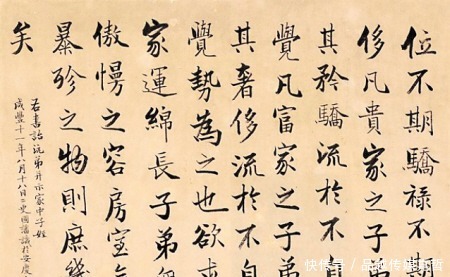 位不期驕祿不期
侈凡貴家之子弟
其矜驕流於不
覺凡富家之子弟
其奢侈流於不自
覺勢為之也欲求
家運綿長子弟無
傲慢之容房室無
暴殄之物則庶幾
矣
右書詒沅弟並示家中子姪
咸豐十一年八月十八日 國藩識於安慶
快传号